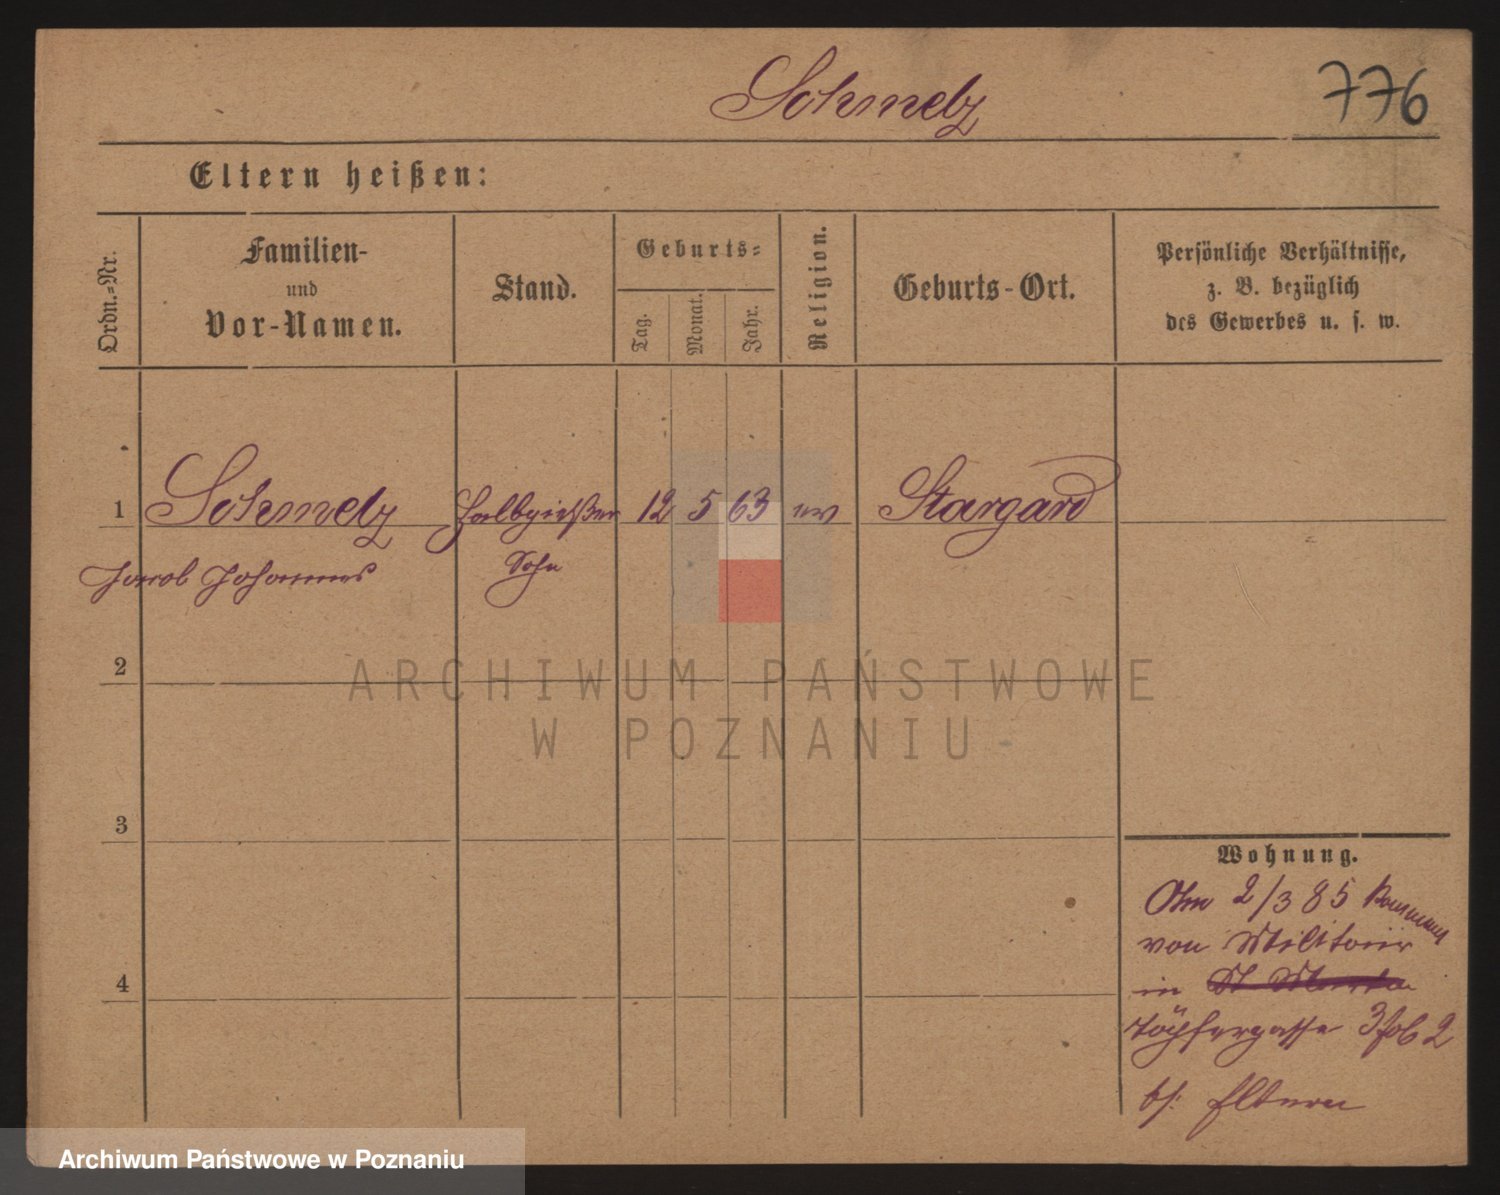 Schmelz
776
Eltern heißen:
Ordn.-Nr.
Familien-
und
Vor-Namen.
Stand.
Geburts-
Tag.
Monat.
Jahr.
Religion.
Geburts-Ort.
Persönliche Verhältnisse,
z. B. bezüglich
des Gewerbes u. s. w.
1
Schmelz
Gelbgießer
12
5
63
ev
Stargard
Johannes
Sohn
2
ARCHIWUM PAŃSTWOWE
W POZNANIU
3
Wohnung.
2/3 85 kommen
von Militair
4
in
Töpfergasse 3
b/: Eltern
Archiwum Państwowe w Poznaniu